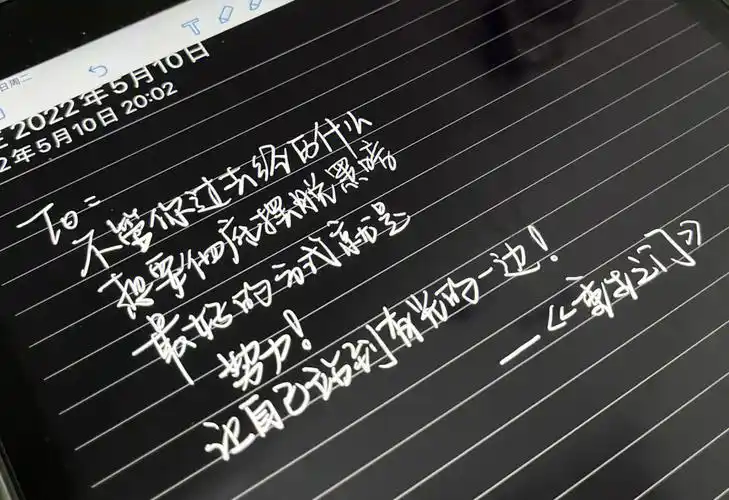 日周二
2022年5月10日
2年5月10日 20:02
To:
不管你过去经历什么
想要彻底摆脱黑暗
最好的方式就是
努力！
让自己站到有光的一边！
—《重生之门》